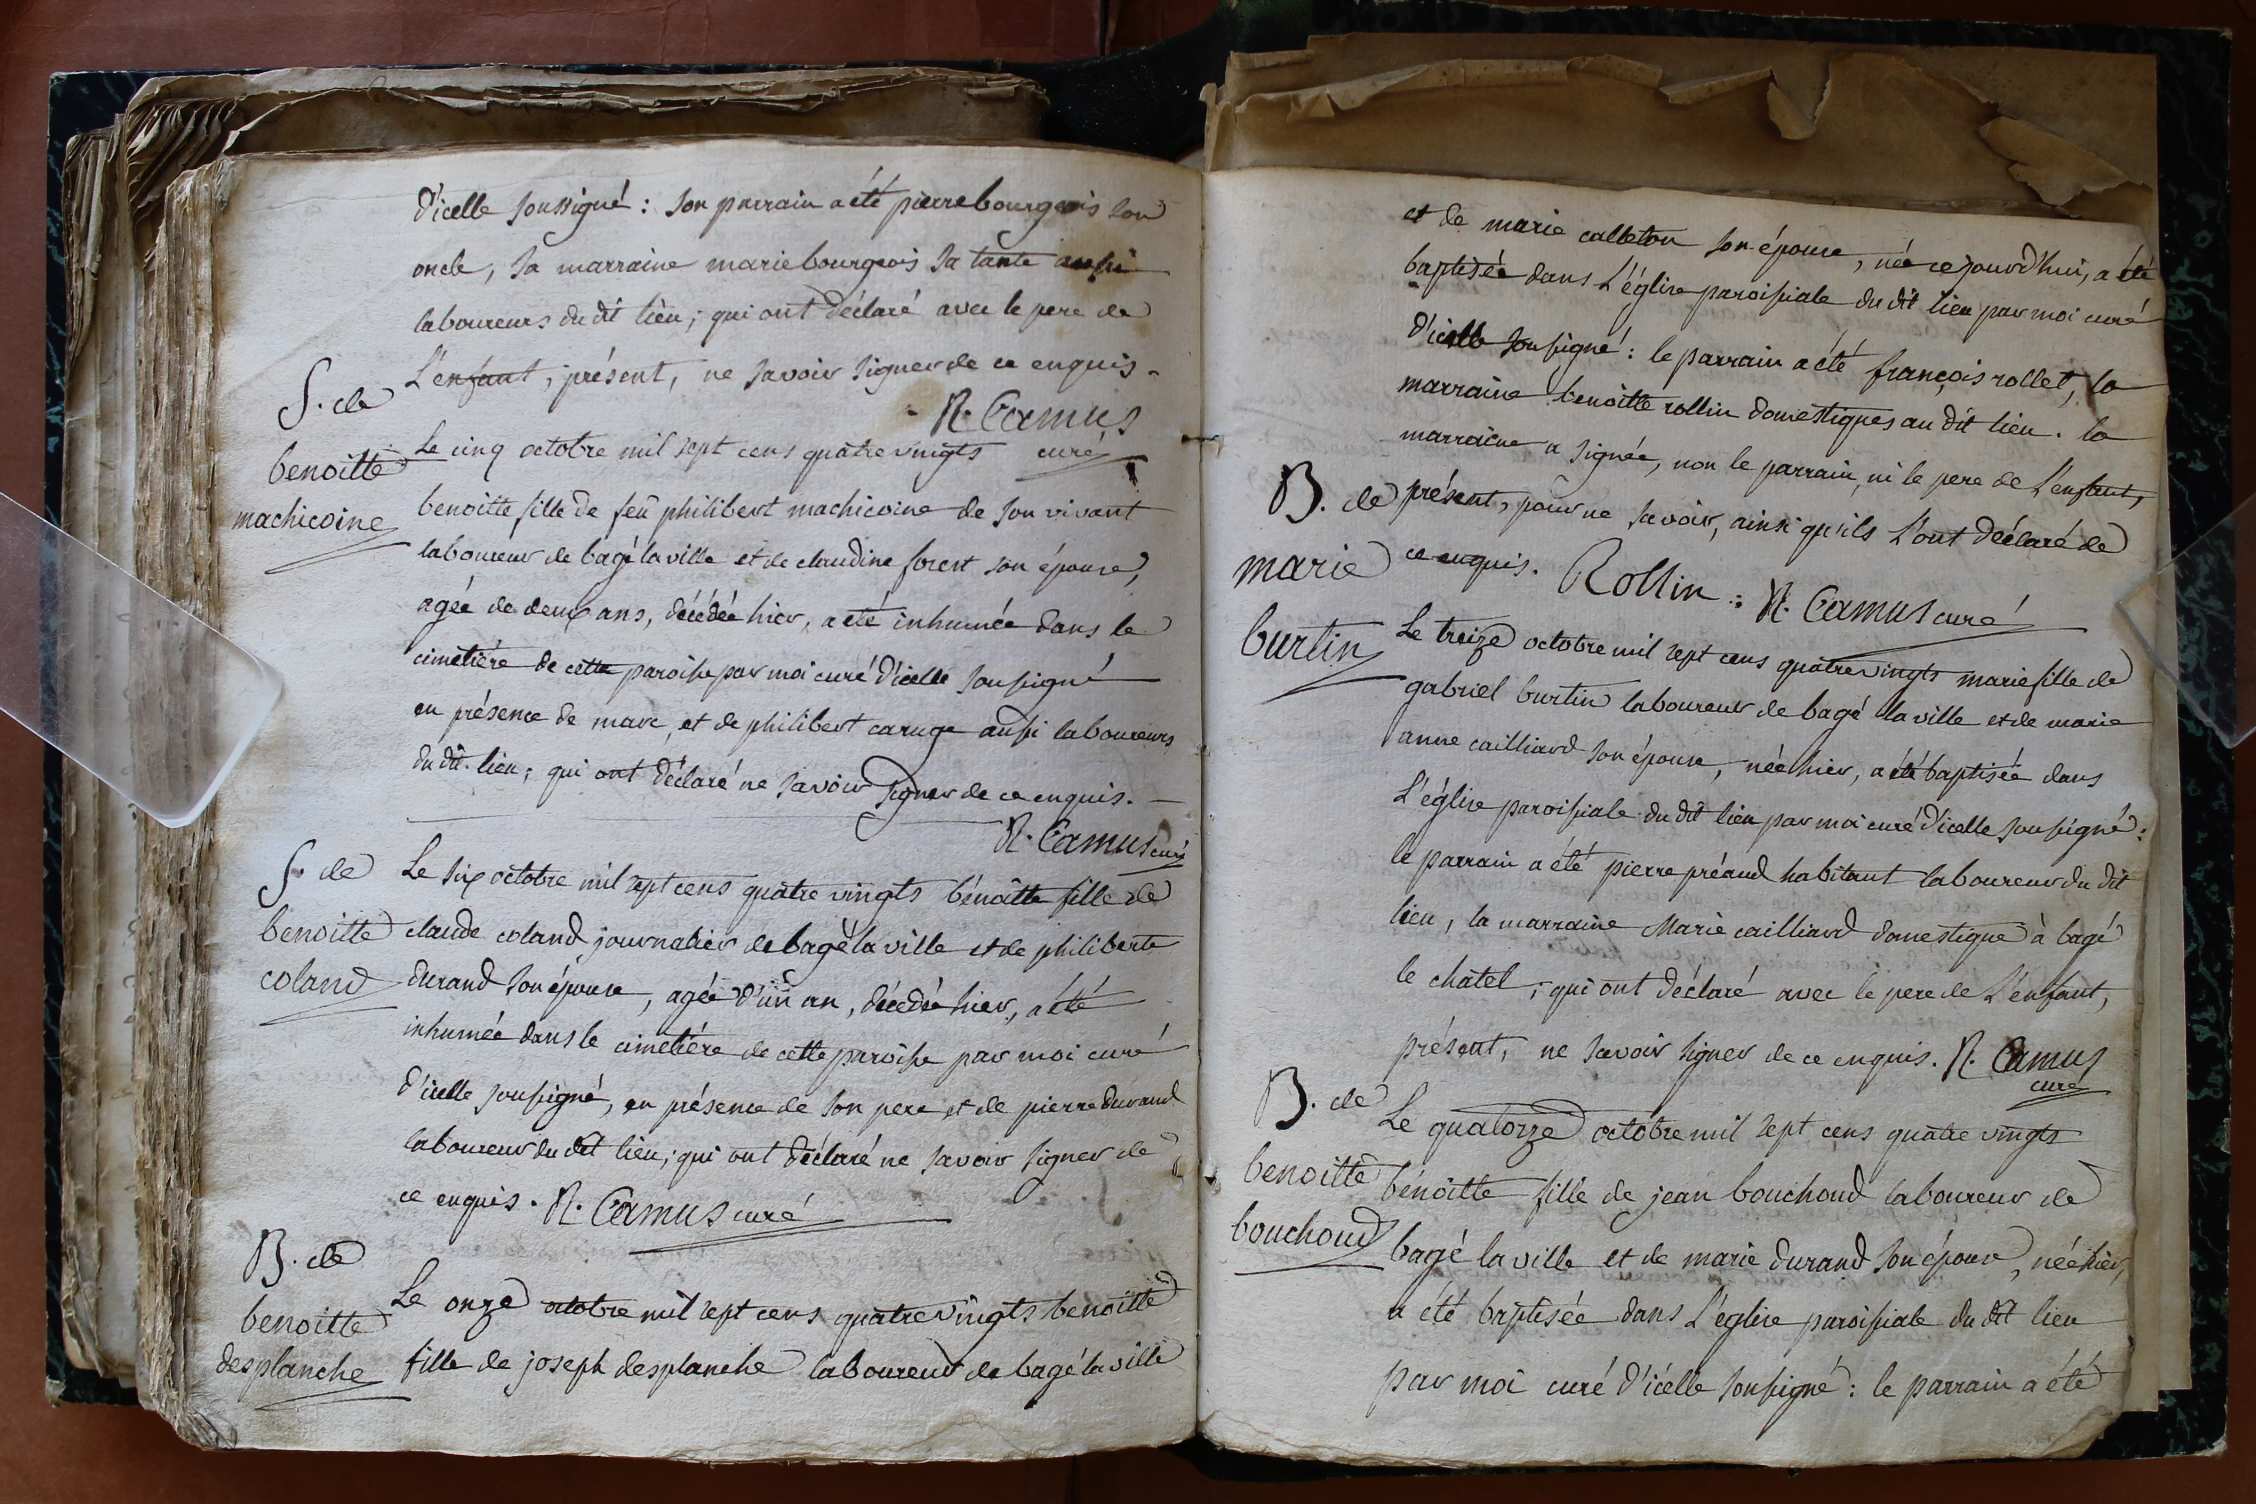 d'icelle soussigné : son parrain a été pierre bourgeois son
oncle, sa marraine marie bourgeois sa tante aussi
laboureurs du dit lieu; qui ont déclaré avec le pere de
L'enfant, présent, ne savoir signer de ce enquis.
R. Camus
curé
S. de
benoitte
machicoine
Le cinq octobre mil sept cens quatre vingts
benoitte fille de feû philibert machicoine de son vivant
laboureur de bagé la ville et de claudine forest son épouse,
agée de deux ans, décédée hier, a été inhumée dans le
cimetière de cette paroisse par moi curé d'icelle soussigné
en présence de marc, et de philibert caruge aussi laboureurs
du dit lieu; qui ont déclaré ne savoir signer de ce enquis.
R. Camus curé
S. de
benoitte
coland
Le six octobre mil sept cens quatre vingts benoitte fille de
claude coland journalier de bagé la ville et de philiberte
durand son épouse, agée d'un an, décédée hier, a été
inhumée dans le cimetière de cette paroisse par moi curé
d'icelle soussigné, en présence de son pere et de pierre durand
laboureur du dit lieu; qui ont déclaré ne savoir signer de
ce enquis. R. Camus curé
B. de
benoitte
desplanche
Le onze octobre mil sept cens quatre vingts benoitte
fille de joseph desplanche laboureur de bagé la ville
et de marie calleton son épouse, née ce jourd'hui, a été
baptisée dans L'église paroissiale du dit lieu par moi curé
d'icelle soussigné : le parrain a été françois rollet, la
marraine benoitte rollin domestiques au dit lieu. la
marraine a signée, non le parrain, ni le pere de L'enfant,
présent, pour ne savoir, ainsi qu'ils L'ont déclaré de
ce enquis. Rollin : R. Camus curé
B. de
marie
burtin
Le treize octobre mil sept cens quatre vingts marie fille de
gabriel burtin laboureur de bagé la ville et de marie
anne cailliard son épouse, née hier, a été baptisée dans
L'église paroissiale du dit lieu par moi curé d'icelle soussigné :
le parrain a été pierre préaud habitant laboureur du dit
lieu, la marraine Marie cailliard domestique à bagé
le chatel; qui ont déclaré avec le pere de L'enfant,
présent, ne savoir signer de ce enquis. R. Camus
curé
B. de
benoitte
bouchoud
Le quatorze octobre mil sept cens quatre vingts
benoitte fille de jean bouchoud laboureur de
bagé la ville et de marie durand son épouse, née hier,
a été baptisée dans L'église paroissiale du dit lieu
par moi curé d'icelle soussigné : le parrain a été